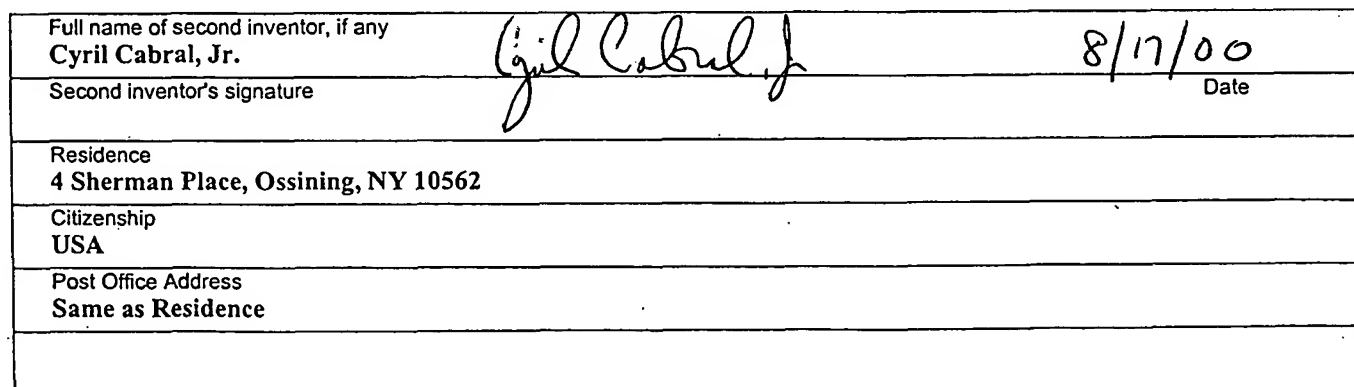 Full name of second inventor, if any
Cyril Cabral, Jr. Cyril Cabral, Jr 8/17/00
Second inventor's signature Date
Residence
4 Sherman Place, Ossining, NY 10562
Citizenship
USA
Post Office Address
Same as Residence